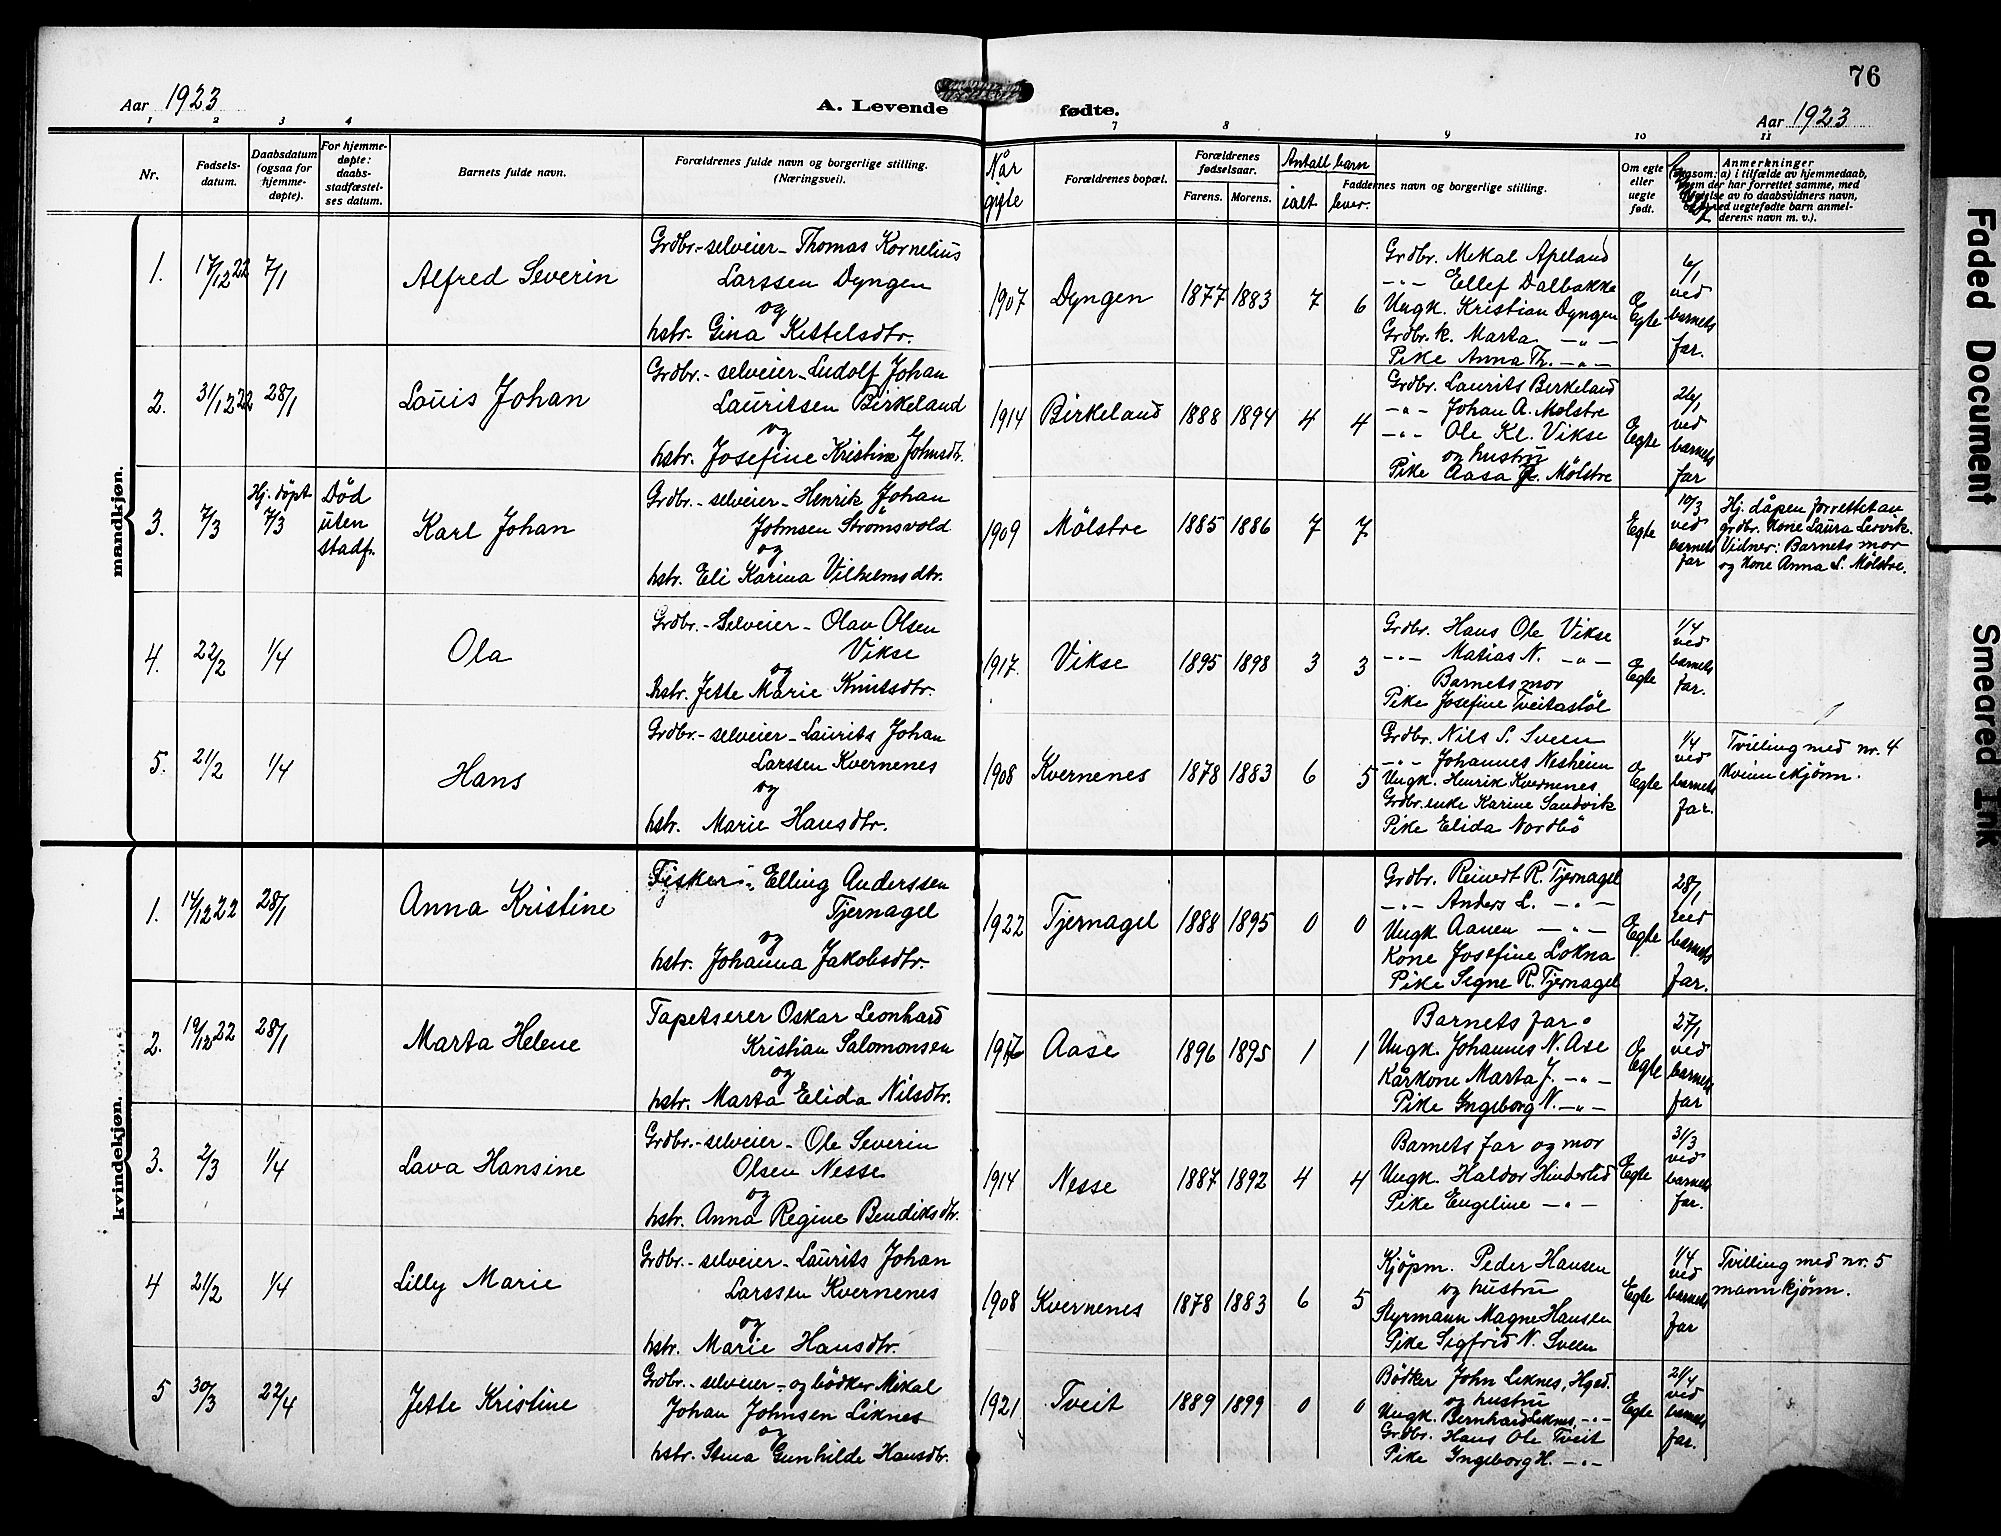 76
Aar 1923
A. Levende fødte.
Aar 1923
1 2 3 4 7 8 9 10 11
Nr.
Fødsels-
datum.
Daabsdatum
(ogsaa for
hjemme-
døpte).
For hjemme-
døpte:
daabs-
stadfæstel-
ses datum.
Barnets fulde navn.
Forældrenes fulde navn og borgerlige stilling.
(Næringsvei).
Når
gifte
Forældrenes bopæl.
Forældrenes
fødselsaar.
Farens. Morens.
Antall barn
ialt lever.
Faddernes navn og borgerlige stilling.
Om egte
eller
uegte
født.
Anmerkninger
saasom: a) i tilfælde av hjemmedaab,
hvem der har forrettet samme, med
av to daabsvidners navn,
ved uegtefødte barn anmel-
derens navn m. v.).
mandkjøn.
1. 17/12 22 7/1 Alfred Severin
Grdbr.- selveier - Thomas Kornelius
Larssen Dyngen
og
hstr. Gina Kittelsdtr.
1907 Dyngen 1877 1883 7 6
Grdbr. Mekal Apeland
-"- Ellef Dalbakke
Ungk. Kristian Dyngen
Grdbr.k. Marta -"-
Pike Anna Th. -"-
Egte
6/1
ved
barnets
far.
2. 31/12 22 28/1 Louis Johan
Grdbr.- selveier - Ludolf Johan
Lauritsen Birkeland
og
hstr. Josefine Kristine Johnsdtr.
1914 Birkeland 1888 1894 4 4
Grdbr. Laurits Birkeland
-"- Johan A. Mølstre
-"- Ole Kl. Vikse
og hustru
Pike Aasa Mølstre
Egte
26/1
ved
barnets
far
3. 7/3 Hj. døpt
7/3
Død
uten
stadf.
Karl Johan
Grdbr.- selveier - Henrik Johan
Johnsen Strømsvold
og
hstr. Eli Karina Vilhelmsdtr.
1909 Mølstre 1885 1886 7 7
Egte
10/3
ved
barnets
far
Hj. dåpen forrettet av
grdbr. kone Laura Lervik.
Vidner: Barnets mor
og kone Anna S. Mølstre.
4. 22/2 1/4 Ola
Grdbr.- Selveier - Olav Olsen
Vikse
og
hstr. Jette Marie Knutsdtr.
1917. Vikse 1895 1898 3 3
Grdbr. Hans Ole Vikse
-"- Matias N. -"-
Barnets mor
Pike Josefine Tveitastøl
Egte
1/4
ved
barnets
far.
5. 21/2 1/4 Hans
Grdbr.- selveier - Laurits Johan
Larssen Kvernenes
og
hstr. Marie Hansdtr.
1908 Kvernenes 1878 1883 6 5
Grdbr. Nils S. Sveen
-"- Johannes Nesheim
Ungk. Henrik Kvernenes
Grdbr.enke Karine Sandvik
Pike Elida Nordbø
Egte
1/4
ved
barnets
far.
Tvilling med nr. 4
kvinnekjønn.
kvindekjøn.
1. 14/12 22 28/1 Anna Kristine
Fisker - Elling Anderssen
Tjernagel
og
hstr. Johanna Jakobsdtr.
1922 Tjernagel 1888 1895 0 0
Grdbr. Reinert R. Tjernagel
-"- Anders L. -"-
Ungk. Aanen -"-
Kone Josefine Lokna
Pike Signe R. Tjernagel
Egte
28/1
ved
barnets
far.
2. 19/12 22 28/1 Marta Helene
Tapetserer Oskar Leonhard
Kristian Salomonsen
og
hstr. Marta Elida Nilsdtr.
Aase 1896 1895 1 1
Barnets far.
Ungk. Johannes N. Åse
Kårkone Marta J. -"-
Pike Ingeborg N. -"-
Egte
27/1
ved
barnets
far
3. 2/3 1/4 Lava Hansine
Grdbr.- selveier - Ole Severin
Olsen Nesse
og
hstr. Anna Regine Bendiksdtr.
1914 Nesse 1887 1892 4 4
Barnets far og mor
Ungk. Haldor Hinderlid
Pike Engeline -"-
Egte
31/3
ved
barnets
far.
4 21/2 1/4 Lilly Marie
Grdbr.- selveier - Laurits Johan
Larssen Kvernenes
og
hstr. Marie Hansdtr.
1908 Kvernenes 1878 1883 6 5
Kjøpm. Peder Hansen
og hustru
Styrmann Magne Hansen
Pike Sigfrid N. Sveen
Egte
1/4
ved
barnets
far
Tvilling med nr. 5
mannkjønn.
5 30/3 22/4 Jette Kristine
Grdbr.- selveier - og bødker Mikal
Johan Johnsen Liknes
og
hstr. Stina Gunhilde Hansdtr.
1921 Tveit 1889 1899 0 0
Bødker John Liknes, Hgsd.
og hustru
Ungk. Bernhard Liknes, -"-
Grdbr. Hans Ole Tveit
Pike Ingeborg H. -"-
Egte
21/4
ved
barnets
far.
Faded Document
Smeared Ink